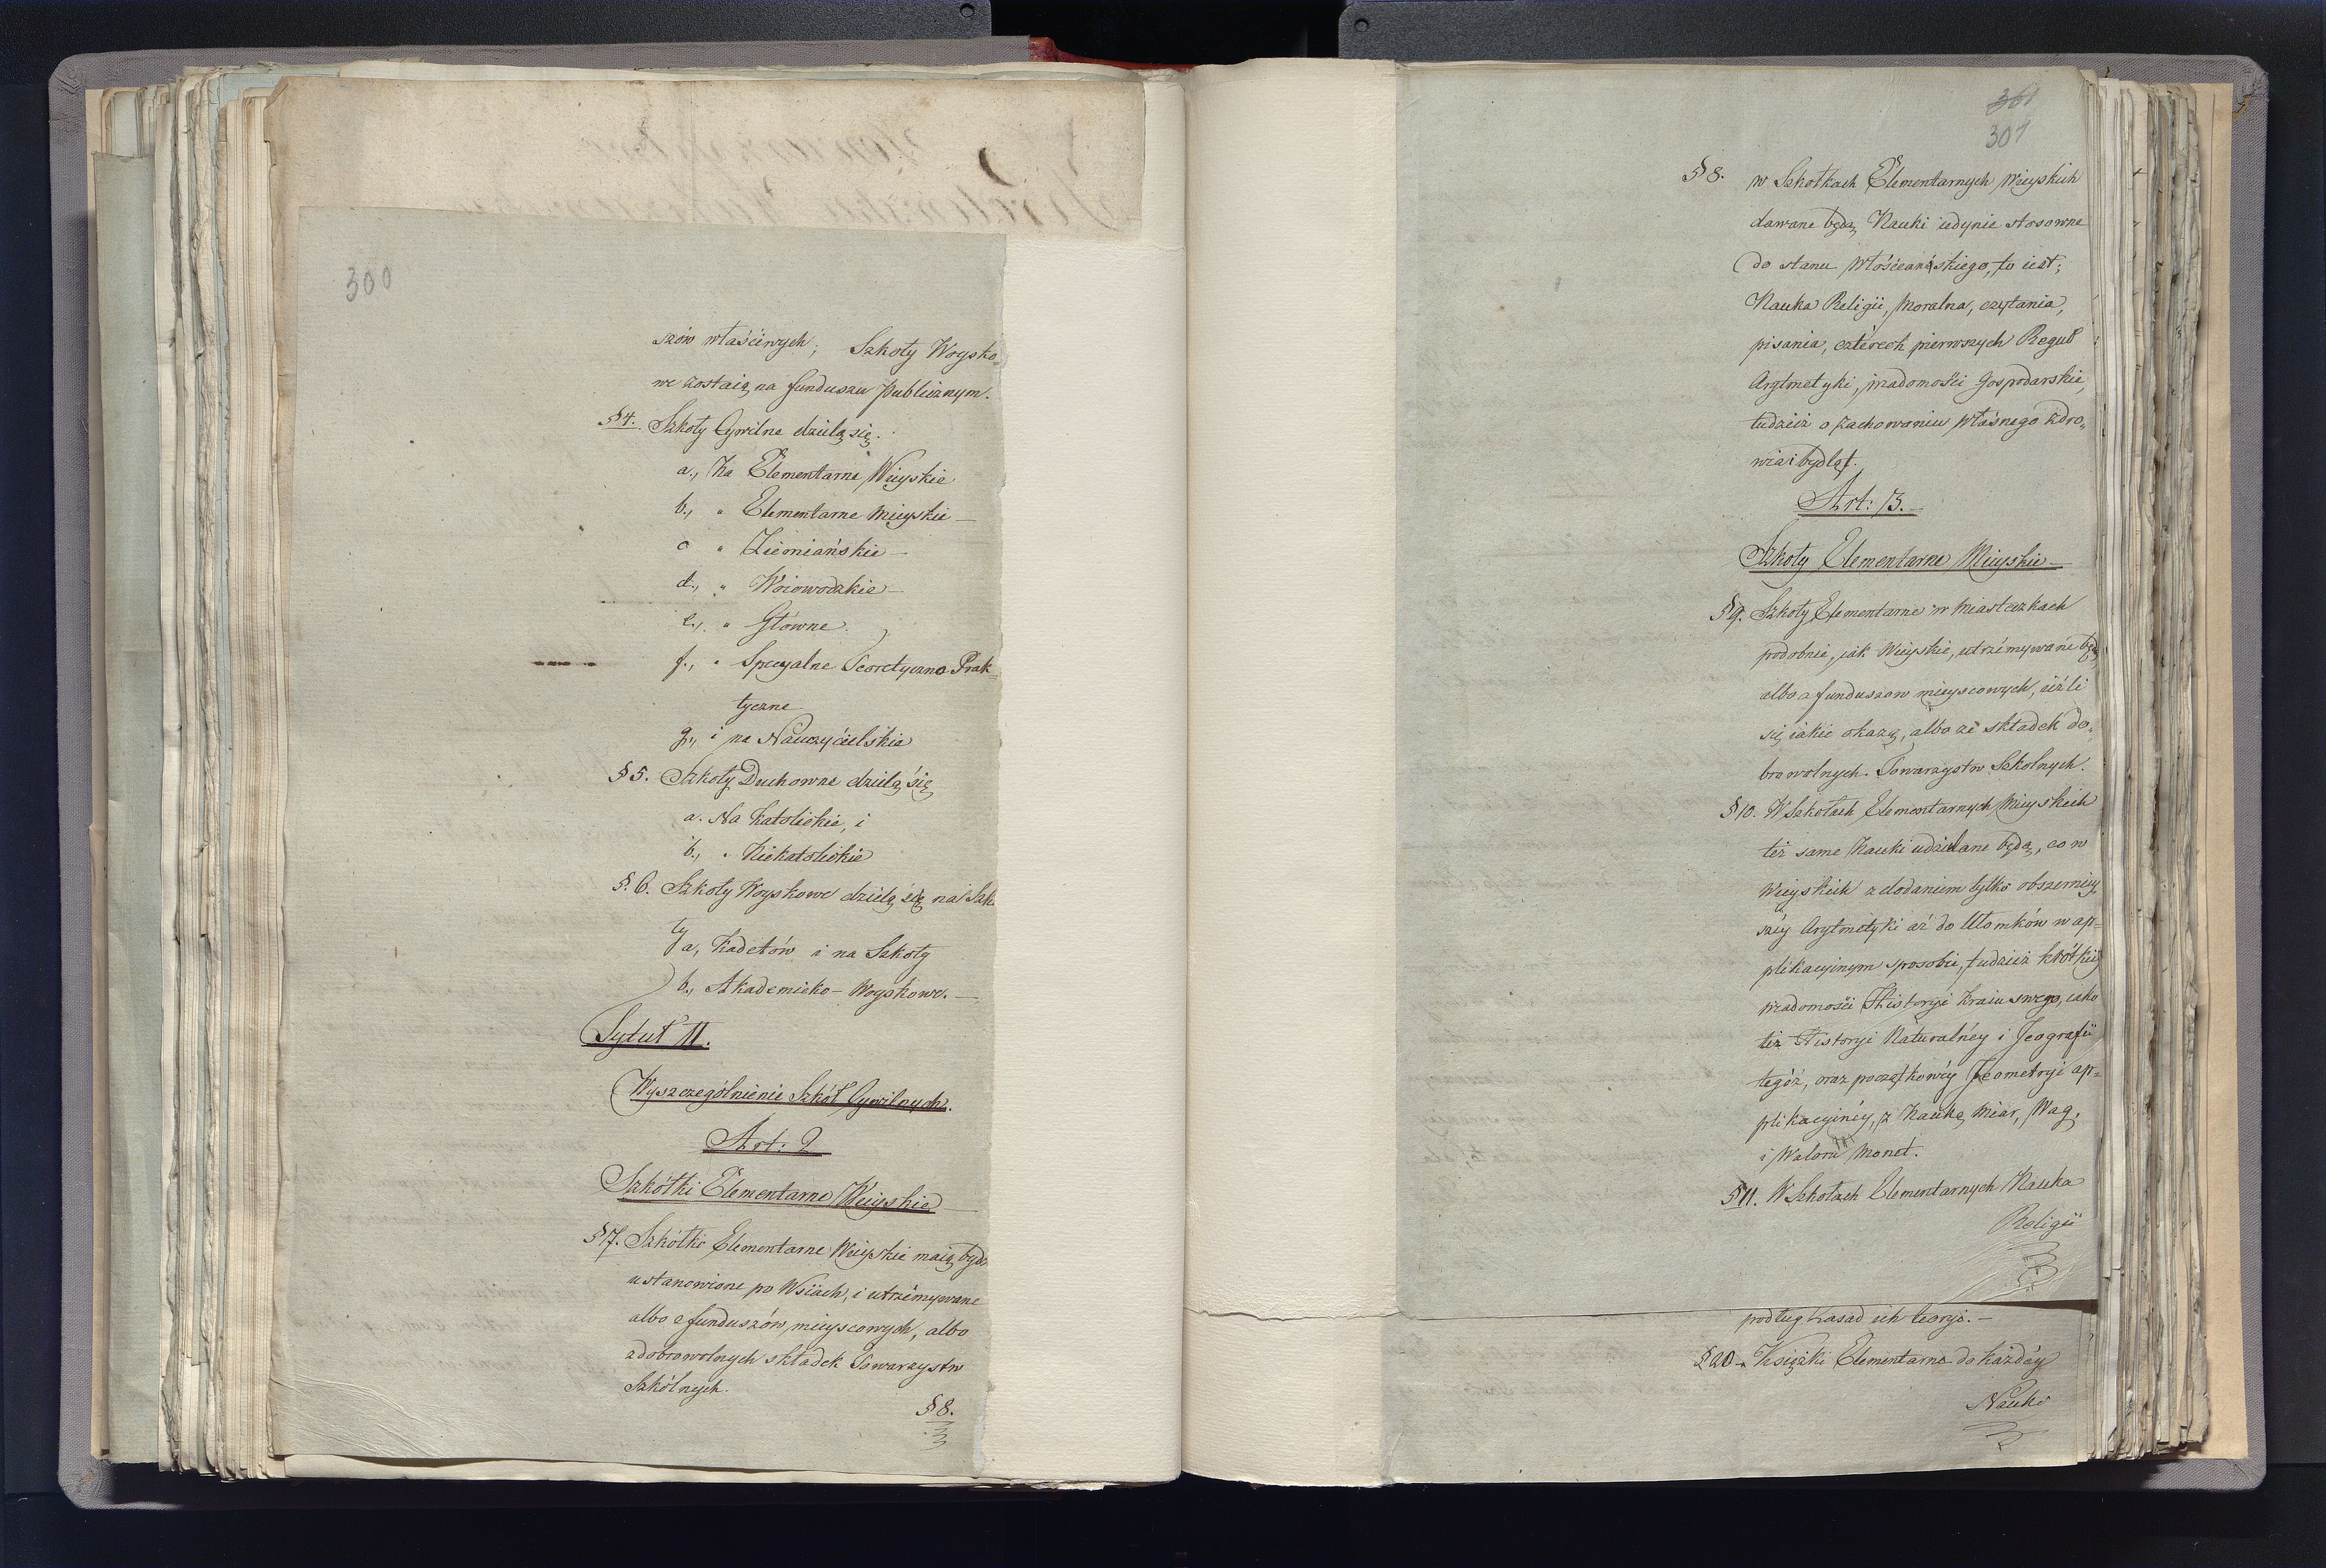 300
szów właściwych; Szkoły Woysko-
we zostaią na funduszu publicznym.
§4. Szkoły Cywilne dzielą się.
a., Na Elementarne Wieyskie
b., " Elementarne Mieyskie —
c " Ziemiańskie —
d., " Woiewodzkie —
e., " Główne.
f., " Specyalne Teoretyczno Prak-
tyczne
g., i na Nauczycielskie
§5. Szkoły Duchowne dzielą się
a. Na Katolickie, i
b., " Niekatolickie
§. 6. Szkoły Woyskowe dzielą się na Szko
ły
a, Kadetów i na Szkoły
b., Akademicko – Woyskowe. —
Tytuł II.
Wyszczególnienie Szkół Cywilnych.
Art: 2
Szkółki Elementarne Wieyskie
§7. Szkółki Elementarne Wieyskie maią bydź
ustanowione po Wsiach, i utrzémywane
albo z funduszów mieyscowych, albo
z dobrowolnych składek Towarzystw
Szkólnych.
§8.
361
301
§8. w Szkołkach Elementarnych Wieyskich
dawane będą Nauki iedynie stosowne
do stanu Włościańskiego, to iest;
Nauka Religii, Moralna, czytania,
pisania, czterech pierwszych Reguł
Arytmetyki, wiadomości Gospodarskie,
tudzież o zachowaniu własnego zdro„
wia i bydląt.
Art: 3.
Szkoły Elementarne Mieyskie —
§9. Szkoły Elementarne w Miasteczkach
podobnie, iak Wieyskie, utrzémywane będą
albo z funduszow mieyscowych, ieźli
się iakie okażą, albo ze składek do„
browolnych Towarzystw Szkolnych.
§10. W Szkołach Elementarnych Mieyskich
też same Nauki udzielane będą, co w
Wieyskich z dodaniem tylko obszerniey
széy Arytmetyki aż do Ułomków w ap-
plikacyinym sposobie, tudzież krótkiéy
wiadomości Historyi Kraiu swego, iako
też Historyi Naturalnéy i Jeografii
tegóż, oraz początkowéy Jeometryi ap-
plikacyinéy, z Nauką Miar, Wag,
i Waloru Monet.
§11. W Szkołach Elementarnych Nauka
Religii
podług Zasad ich teoryi. —
§20 Książki Elementarne do każdéy
Nauki